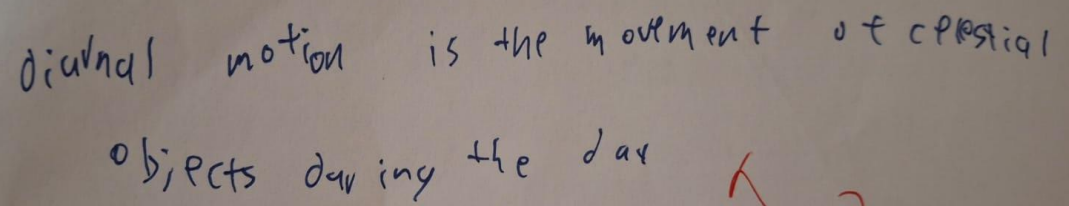 diurnal motion is the movement of celestial
objects during the day